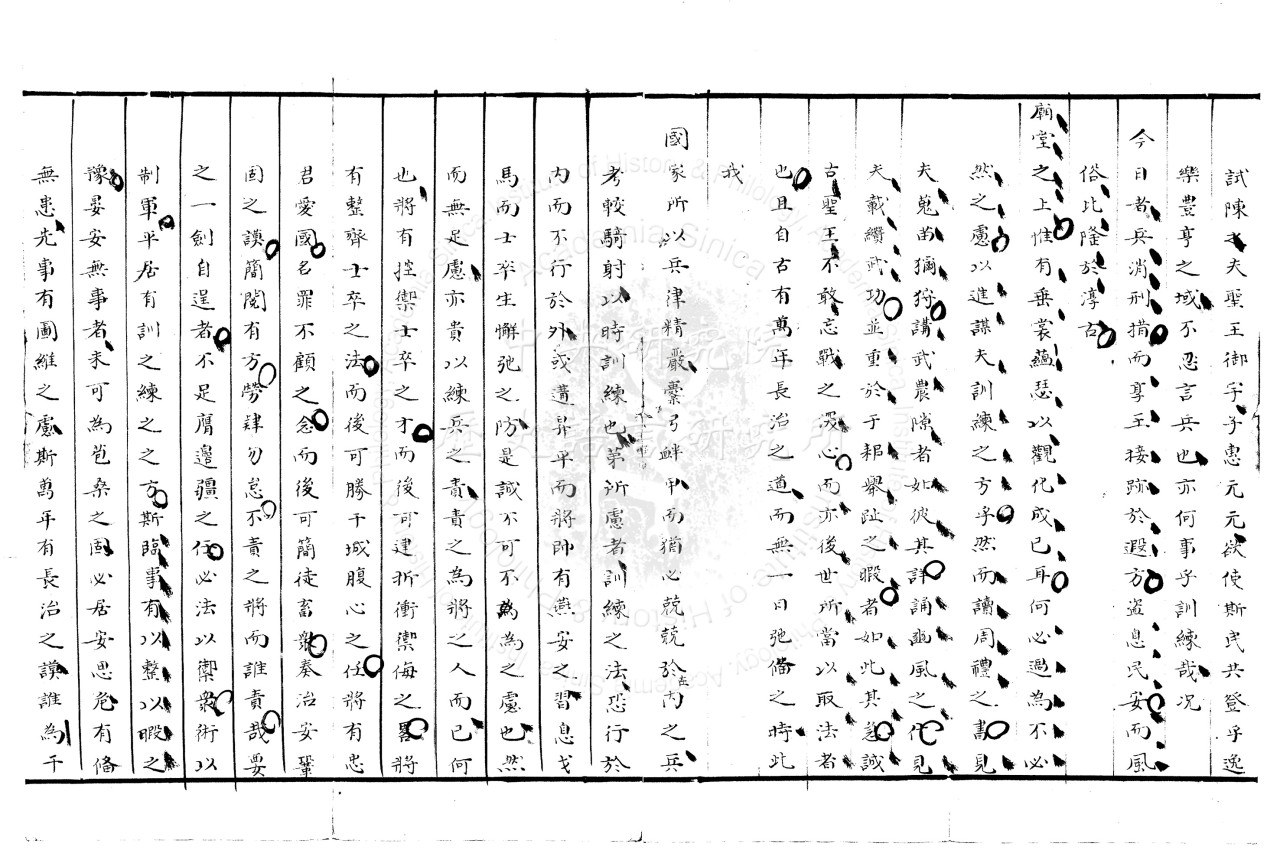 試陳之夫聖王御宇子惠元元欲使斯民共登乎逸
樂豐亨之域不忍言兵也亦何事乎訓練哉况
今日者兵消刑措而享王接跡於遐方盜息民安而風
俗比隆於淳古
廟堂之上惟有垂裳蘊瑟以觀化成已耳何必過為不必
然之慮以進謀夫訓練之方乎然而讀周禮之書見
夫蒐苗獮狩講武農隙者如彼其詳誦豳風之什見
夫載纘武功並重於于耜舉趾之暇者如此其急誠
古聖王不敢忘戰之深心而亦後世所當以取法者
也且自古有萬年長治之道而無一日弛備之時此
我
國家所以兵律精嚴櫜弓衅甲而猶必兢兢於內之兵
考較騎射以時訓練也第所慮者訓練之法忍行於
內而不行於外或遭昇平而將帥有燕安之習息戈
馬而士卒生懈弛之防是誠不可不為為之慮也然
而無足慮亦貴以練兵之責責之為將之人而已何
也將有控禦士卒之才而後可建折衝禦侮之畧將
有整齊士卒之法而後可勝干城腹心之任將有忠
君愛國名罪不顧之念而後可簡徒畜衆奏治安鞏
固之謨簡閱有方勞肄勿怠不責之將而誰責哉要
之一劍自逞者不足膺邊疆之任必法以禦衆術以
制軍平居有訓之練之之方斯臨事有以整以暇之
豫晏安無事者未可為苞桑之固必居安思危有備
無患先事有圖維之慮斯萬年有長治之謨誰為干